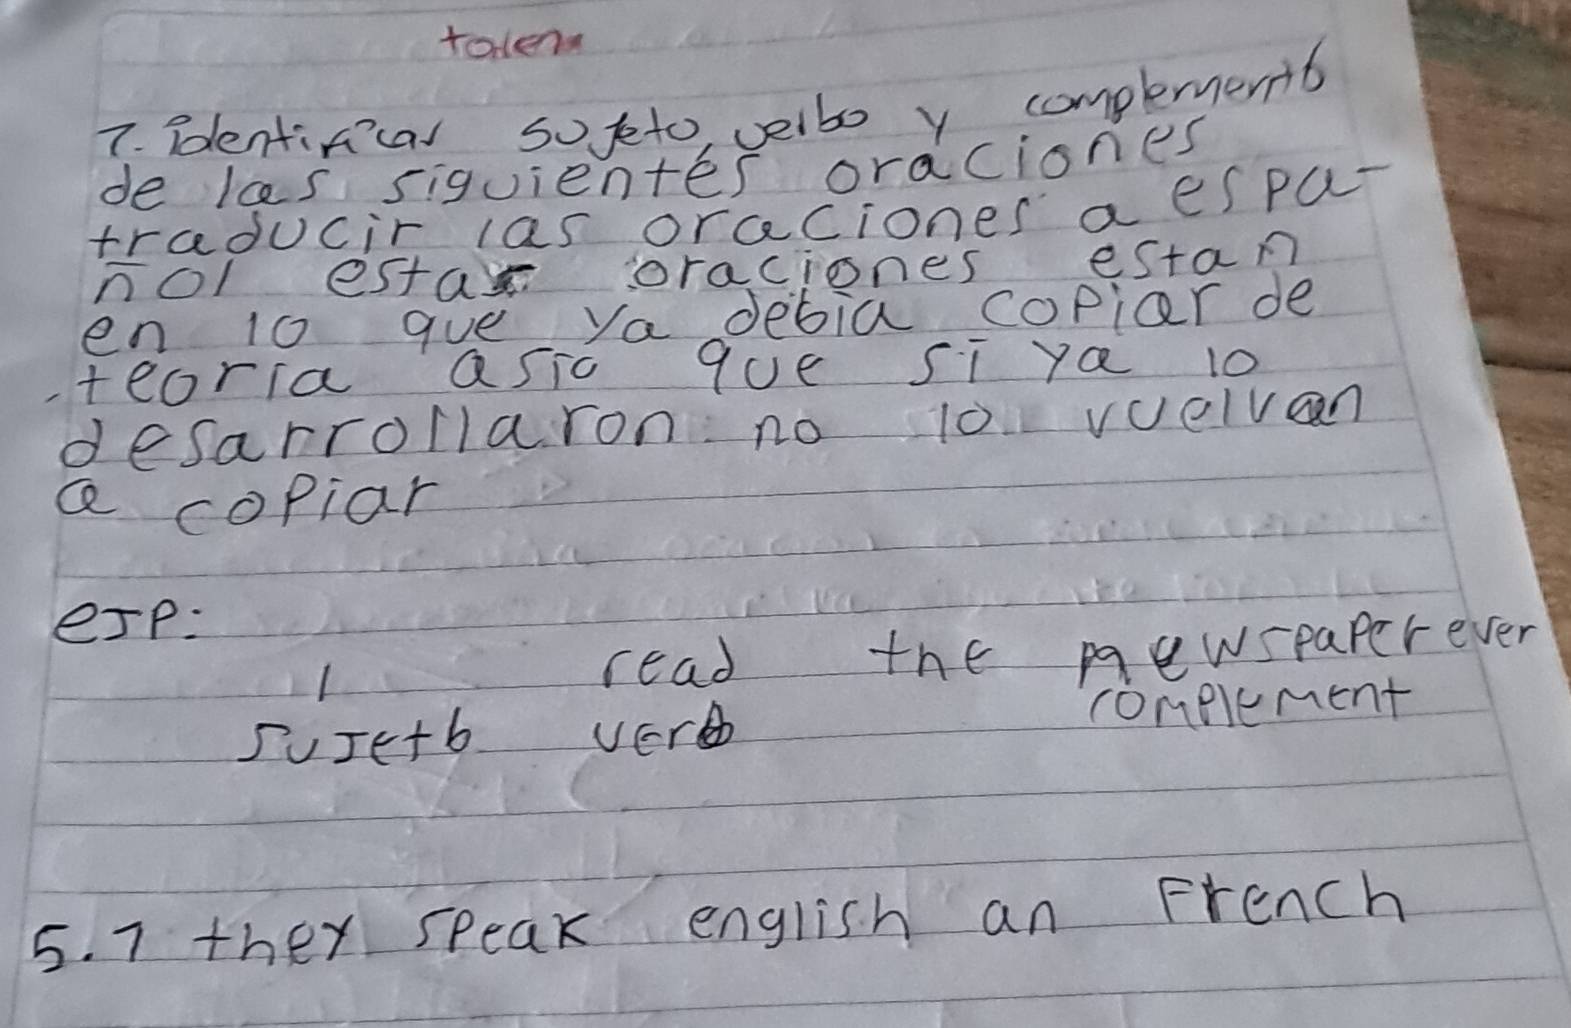 7. identificar sujeto, verbo y complemento
de las siguientes oraciones
traducir las oraciones a espa-
ñol estas oraciones estan
en lo que ya debia copiar de
teoria asio que si ya lo
desarrollaron no lo vuelvan
a copiar
eJP:
I read the newspaper ever
sujeto verb complement
5.1 they speak english an French